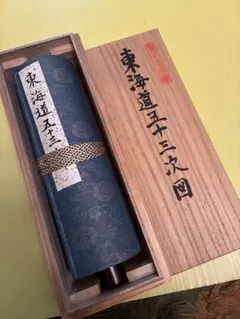 東海道五十三次図
東海道五十三